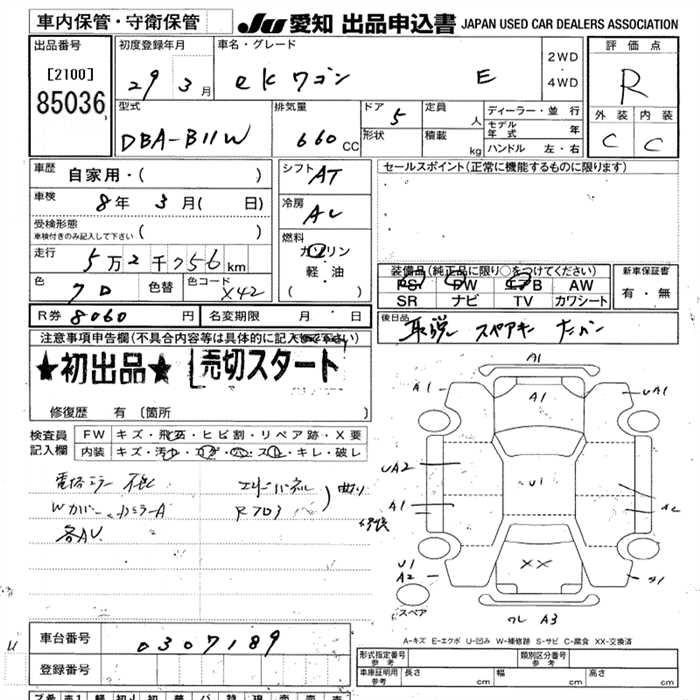 車内保管・守衛保管
JU 愛知 出品申込書 JAPAN USED CAR DEALERS ASSOCIATION
出品番号
[2100]
85036
初度登録年月
29年 3月
車名・グレード
eKワゴン E
2WD
・
4WD
評価点
R
外装 内装
C C
型式
DBA-B11W
排気量
660 CC
ドア 5
形状
定員 人
積載 kg
ディーラー・並行
モデル年式 年
ハンドル 左・右
車歴
自家用・( )
シフト AT
セールスポイント(正常に機能するものに限ります)
車検 8年 3月( 日)
冷房 AC
受検形態
車検付きのみ記入して下さい ( )
燃料
ガソリン
軽・油
( )
走行 5万2千756km
色 色替 色コード X42
装備品(純正品に限り○をつけてください)
PS PW エアB AW
SR ナビ TV カワシート
新車保証書
有・無
R券 8060円
名変期限 月 日
後日品
取説 スペアキー
注意事項申告欄(不具合内容等は具体的に記入して下さい)
★初出品★ 売切スタート
修復歴 有〔箇所 〕
検査員
記入欄
FW キズ・飛石・ヒビ割・リペア跡・X要
内装 キズ・汚れ・コゲ・穴・スレ・キレ・破レ
各AU
A1
A1
A1
UA1
UA2
U1
A1
A2
U1
A2
XX
S1
スペア
A3
A-キズ E-エクボ U-凹み W-補修跡 S-サビ C-腐食 XX-交換済
車台番号 0307189
登録番号
形式指定番号
参考
類別区分番号
参考
車庫証明用
参考
長さ cm
幅 cm
高さ cm